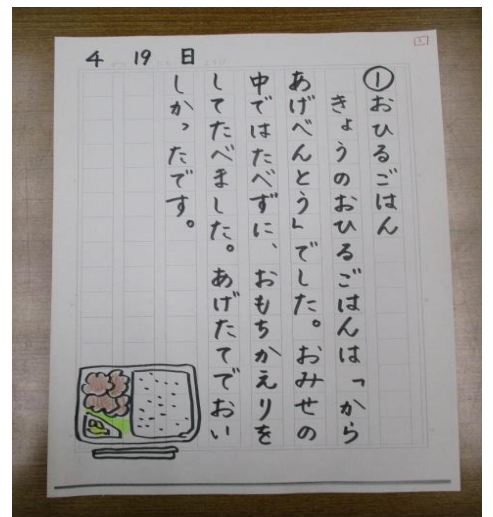 4 19 日
①おひるごはん
きょうのおひるごはんは「から
あげべんとう」でした。おみせの
中ではたべずに、おもちかえりを
してたべました。あげたてでおい
しかったです。